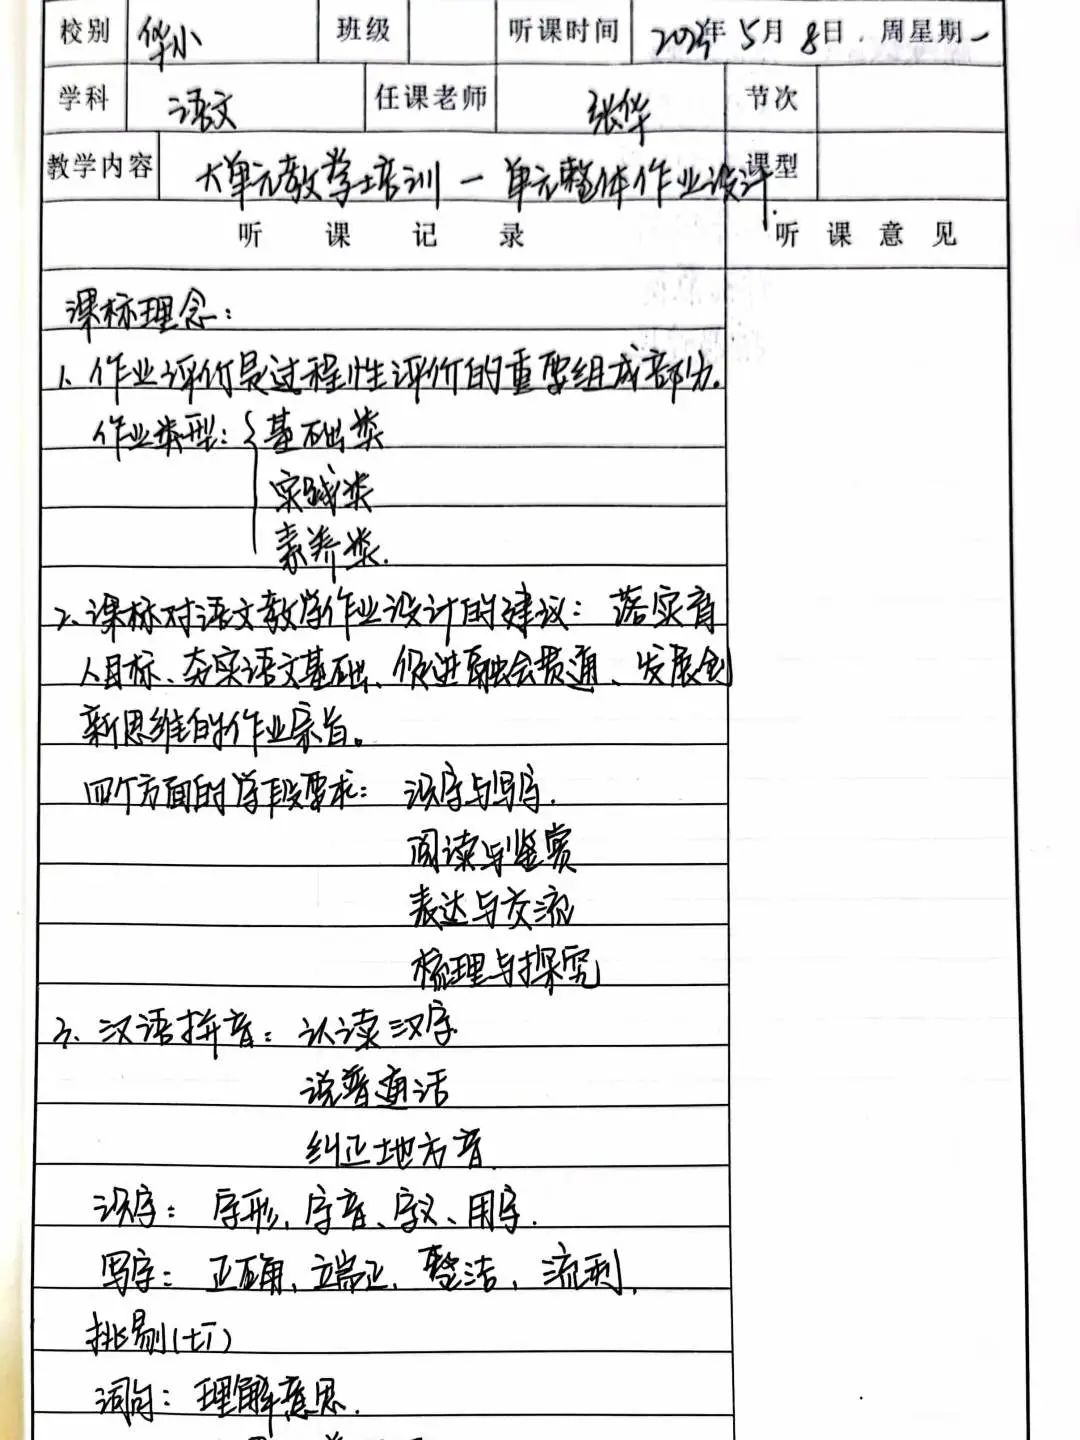 校别 华小 班级 听课时间 年5月8日. 周星期一
学科 语文 任课老师 张华 节次
教学内容 大单元教学培训—单元整体作业设计. 课型
听课记录 听课意见
课标理念：
1、作业评价是过程性评价的重要组成部分。
作业类型：{基础类
实践类
素养类.
2、课标对语文教学作业设计的建议：落实育
人目标、夯实语文基础、促进融会贯通、发展创
新思维的作业宗旨。
四个方面的学段要求：识字与写字.
阅读与鉴赏
表达与交流
梳理与探究
3、汉语拼音：认读汉字
说普通话
纠正地方音.
识字：字形、字音、字义、用字.
写字：正确、端正、整洁、流利.
词句：理解意思.